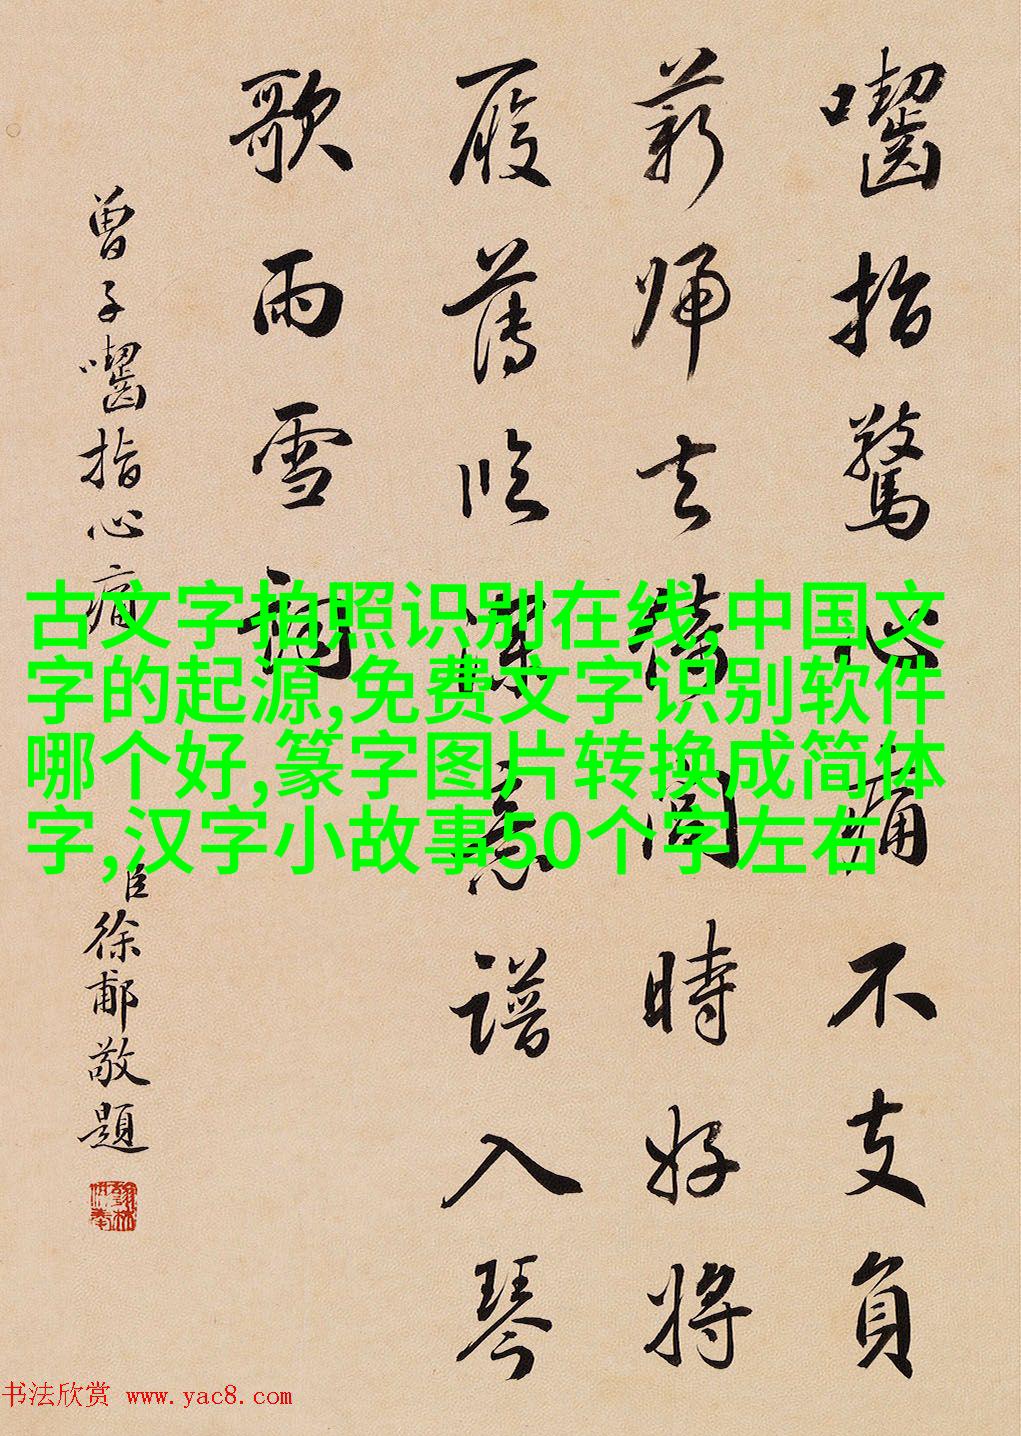 囓指驚心痛不支負
薪歸去閭時好將
履薄臨深意譜入琴
歌雨雪詞
曾子囓指心痛
臣徐郙敬題
翰林供奉
古文字拍照识别在线,中国文
字的起源,免费文字识别软件
哪个好,篆字图片转换成简体
字,汉字小故事50个字左右
书法欣赏 www.yac8.com